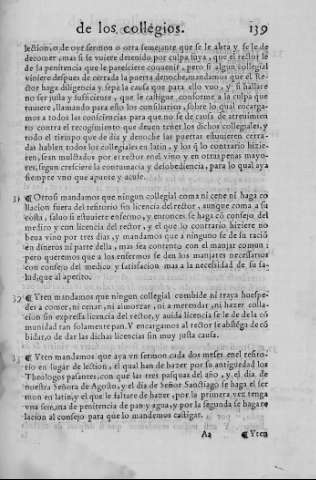 de los collegios. 139
lection, o de oye sermon o otra semejante que se le abra y se le de
de comer, mas si se vuiere detenido por culpa suya, que el rector le
de la penitencia que le paresciere conuenir, pero si algun collegial
viniere despues de cerrada la puerta denoche, mandamos que el Re-
ctor haga diligencia y sepa la causa que para ello vuo, y si hallare
no ser justa y sufficiente, que le castigue conforme a la culpa que
vuiere, llamando para esto los consiliarios, sobre lo qual encarga-
mos a todos las consciencias para que no se de causa de atreuimien
to contra el recogimiento que deuen tener los dichos collegiales, y
todo el tiempo que de dia y denoche las puertas estuuieren cerra-
das hablen todos los collegiales en latin, y los q̃ lo contrario hizie-
ren, sean multados por el rector en el vino y en otras penas mayo-
res, segun cresciere la contumacia y desobediencia, para lo qual aya
siempre vno que apunte y acuse.
31 ¶ Otrosi mandamos que ningun collegial coma ni cene ni haga co
llacion fuera del refitorio sin licencia del rector, aunque coma a su
costa, saluo si estuuiere enfermo, y entonces se haga cõ consejo del
medico y con licencia del rector, y el que lo contrario hiziere no
beua vino por tres dias, y mandamos que a ninguno se de su raciõ
en dineros ni parte della, mas sea contento con el manjar comun :
pero queremos que a los enfermos se den los manjares necessarios
con consejo del medico y satisfacion mas a la necesidad de su sa-
lud, que al apetito.
32 ¶ Yten mandamos que ningun collegial combide ni trayga huespe-
des a comer, ni cenar, ni almorzar, ni a merendar, ni hazer colla-
cion sin expressa licencia del rector, y auida licencia se le de de la cõ
munidad tan solamente pan. Y encargamos al rector se abstẽga de cõ
bidar, o de dar las dichas licencias sin muy justa causa.
33 ¶ Yten mandamos que aya vn sermon cada dos meses en el refito-
rio en lugar de lection, el qual han de hazer por su antiguedad los
Theologos passantes, con que las tres pasquas del año, y el dia de
nuestra Señora de Agosto, y el dia de Señor Sanctiago se haga el ser
mon en latin, y el que le faltare de hazer, por la primera vez tenga
vna semana de penitencia de pan y agua, y por la segunda se haga re
lacion al consejo para que lo mandemos castigar.
Aa ¶ Yten